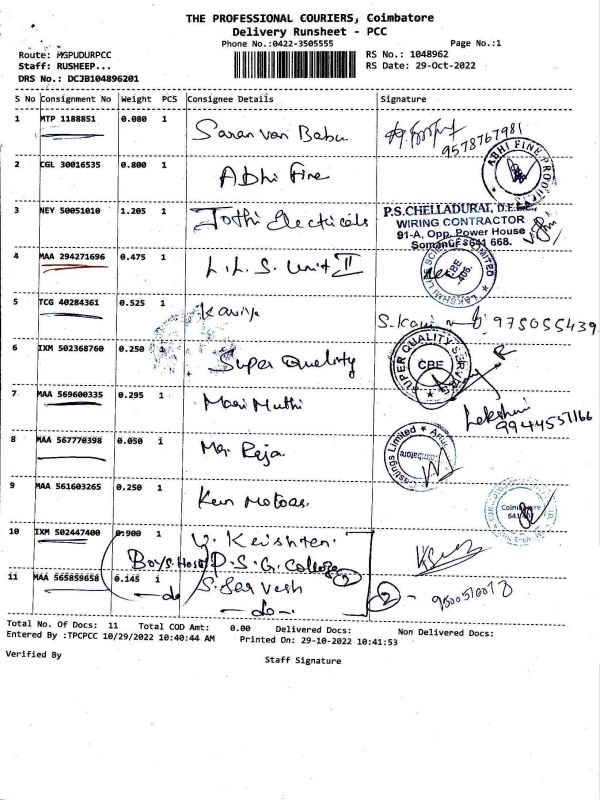 THE PROFESSIONAL COURIERS, Coimbatore
Delivery Runsheet - PCC
Phone No.:0422-3505555
Page No.:1
Route: MGPUDURPCC
RS No.: 1048962
Staff: RUSHEEP...
RS Date: 29-Oct-2022
DRS No.: DCJB104896201
S No Consignment No Weight PCS Consignee Details Signature
1 MTP 1188851 0.080 1 Saravan Babu 9578767981
2 CGL 30016535 0.800 1 ADhi Fine ABHI FINE
3 NEY 50051010 1.205 1 Jothi Electricals
P.S.CHELLADURAI, D.E.E.,
WIRING CONTRACTOR
91-A, Opp. Power House
Somanur-641 668.
4 MAA 294271696 0.475 1 L.L.S. Unit II
5 TCG 40284361 0.525 1 Kaviya
6 IXM 502368760 0.250 Super Quality SUPER QUALITY CBE
7 MAA 569600335 0.295 1 Mari Muthi Lakshmi
9944557166
8 MAA 567770398 0.050 1 Raja
9 MAA 561603265 0.250 1 Ken Motors.
10 IXM 502447400 0.900 1 V. Krishten.
Boys Hostel P.S.G. College
11 MAA 565859658 0.145 1 S. Sarvesh
- do -
Total No. Of Docs: 11 Total COD Amt: 0.00 Delivered Docs: Non Delivered Docs:
Entered By :TPCPCC 10/29/2022 10:40:44 AM Printed On: 29-10-2022 10:41:53
Verified By
Staff Signature